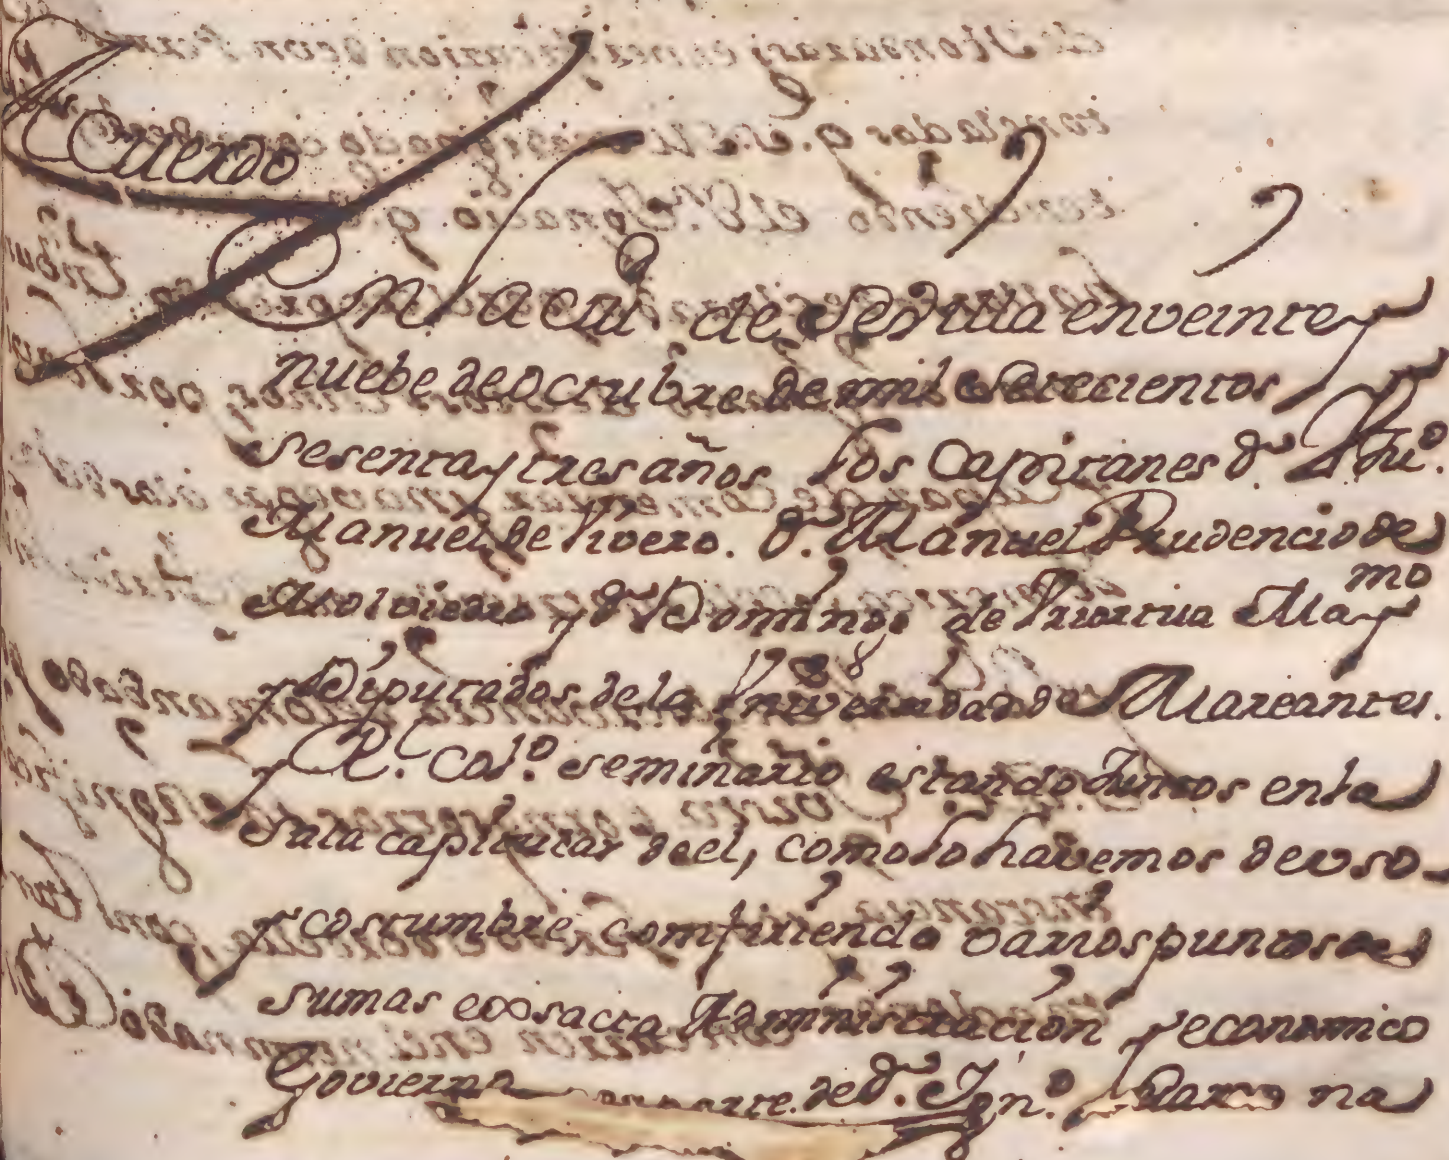 Acuerdo
En la Ciud de Sevilla en veinte y
nuebe de octubre de mil setecientos
sesenta y tres años los Capitanes dn
Manuel de Rivero. dn. Manuel Prudencio de
Molviedro y dn Domingo de Maymo
y Diputados de la Universidad de Mareantes.
y Rl. Colo. seminario estando Juntos en la
sala capitular de el, como lo havemos de uso
y costumbre, confiriendo varios puntos
sumas exsacta Administracion y economico
Govierno parte. de dn. Igno.